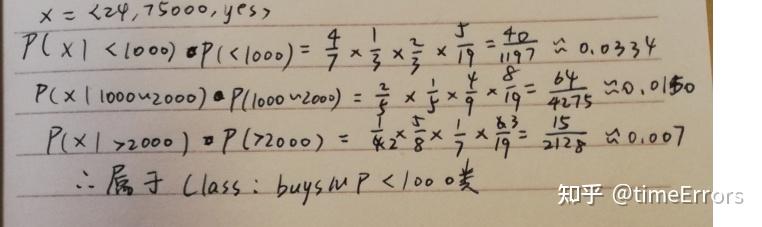 x = <24, 75000, yes>
P(x | <1000) · P(<1000) = 4/7 × 1/3 × 2/3 × 5/19 = 40/1197 ≈ 0.0334
P(x | 1000~2000) · P(1000~2000) = 2/5 × 1/5 × 4/9 × 8/19 = 64/4275 ≈ 0.0150
P(x | >2000) · P(>2000) = 1/2 × 5/8 × 1/7 × 3/19 = 15/2128 ≈ 0.007
∴ 属于 Class: buysMP <1000类
知乎 @timeErrors